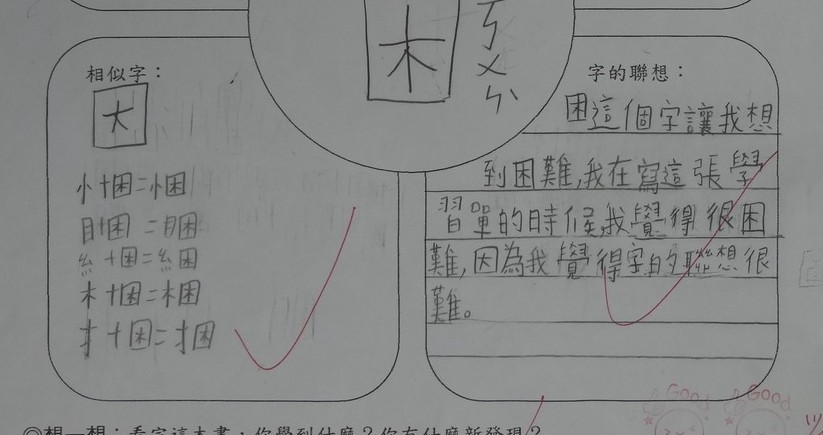 困
ㄎㄨㄣˋ
相似字：
因
忄+困=悃
目+困=睏
糹+困=綑
木+困=梱
扌+困=捆
字的聯想：
困這個字讓我想
到困難,我在寫這張學
習單的時候,我覺得很困
難,因為我覺得字的聯想很
難。
GOOD GOOD
◎想一想：看完這本書，你學到什麼？你有什麼新發現？